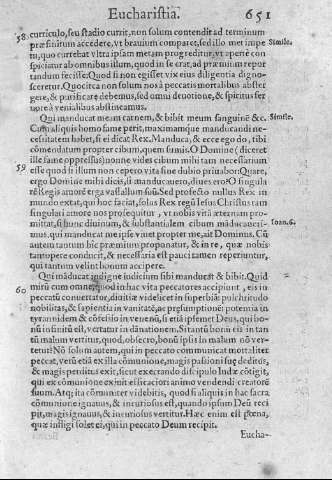 Euchariſtia. 651
58. curriculo, ſeu ſtadio currit, non ſolum contendit ad terminum
præfinitum accedere, vt brauium comparet, ſed illo met impe
tu, quo currebat vltra ipſam metam progreditur, vt aperte con
ſpiciatur ab omnibus illum, quod in ſe erat, ad præmium repor
tandum feciſſe: Quod ſi non egiſſet vix eius diligentia digno-
ſceretur. Quocirca non ſolum nos à peccatis mortalibus abſter
gere, & purificare debemus, ſed omni deuotione, & ſpiritus fer
uore à venialibus abſtineamus.
Simile.
Qui manducat meam carnem, & bibit meum ſanguinẽ &c.
Simile.
Cum aliquis homo fame perit, maximamque manducandi ne-
ceſsitatem habet, ſi ei dicat Rex. Manduca, & ecce ego do, tibi
cõmendatum propter cibum, quem ſumis. O Domine (diceret
ille fame oppreſſus) nonne vides cibum mihi tam neceſſarium
59 eſſe quod ſi illum non cepero vita ſine dubio priuabor: Quare,
ergo Domine mihi dicis, ſi manducauero, diues ero? O ſingula
rẽ Regis amorẽ erga vaſſallum ſuũ. Sed profecto nullus Rex in
mundo extat, qui hoc faciat, ſolus Rex regũ Ieſus Chriſtus tam
ſingulari amore nos proſequitur, vt nobis vitã æternam pro-
mittat, ſi hunc diuinum, & ſubſtantialem cibum mãducaueri-
Ioan. 6.
mus, qui manducat me ipſe viuet propter me, ait Dominus. Cũ
autem tantum hic præmium proponatur, & in re, quæ nobis
tantopere conducit, & neceſſaria eſt pauci tamen reperiuntur,
qui tantum velint bonum accipere.
Qui mãducat indigne iudicium ſibi manducat & bibit. Quid
60 mirũ cum omne, quod in hac vita peccatores accipiunt, eis in
peccatũ conuertatur, diuitiæ videlicet in ſuperbiã: pulchritudo
nobilitas, & ſapientia in vanitatẽ, ac præſumptionẽ: potentia in
tyrannidem & cõtuſio in venenũ, ſi etiã ipſemet Deus, qui bo-
nũ infinitũ eſt, vertatur in dãnationem. Si tantũ bonũ eis in tan
tũ malum vertitur, quod, obſecro, bonũ ipſis in malum nõ ver-
tetur? Nõ ſolum autem, qui in peccato communicat mortaliter
peccat, verũ etiã ex illa cõmunione, magis paſsioni ſuę deditus,
& magis perditus exit, ſicut execrando diſcipulo Iudæ cõtigit,
qui ex cõmunione exinit efficatiori animo vendendi creatorẽ
ſuum. Atq; ita cõmuniter videbitis, quod ſi aliquis in hac ſacra
cõmunione ignauus, & incurioſus eſt, quando ipſum Deũ reci
pit, magis ignauus, & incurioſus vertitur. Hæc enim eſt pœna,
quæ infligi ſolet ei, qui in peccato Deum recipit.
Eucha-